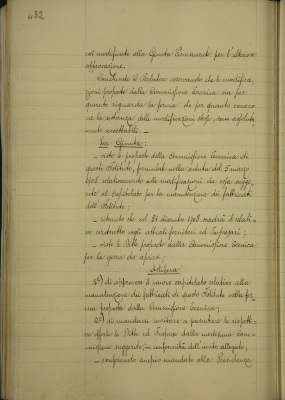 432
così modificato alla Giunta Permanente per l'ulteriore
approvazione.
Conchiude il Relatore osservando che le modifica-
zioni proposte dalla Commissione Tecnica sia per
quanto riguarda la forma che per quanto concer-
ne la sostanza delle modificazioni stesse, sono
accettabili. —
La Giunta:
— viste le proposte della Commissione Tecnica di
questo Istituto, formulate nella seduta del 5 marzo
1908 relativamente alle modificazioni da
al Capitolato per la manutenzione dei fabbricati
dell'Istituto;
— ritenuto che col 31 dicembre 1908 il relati-
vo contratto cogli attuali fornitori ed Impresari;
— viste le Ditte proposte dalla Commissione Tecnica
per la gara da aprirsi;
delibera
1°) di approvare il nuovo capitolato relativo alla
manutenzione dei fabbricati di questo Istituto nella for-
ma proposta dalla Commissione Tecnica;
2°) di mandarsi invitare a presentare le rispetti-
ve offerte le Ditte ed Imprese dalla medesima Com-
missione suggerite, in conformità dell'unito allegato;
— conferendo ampio mandato alla Presidenza